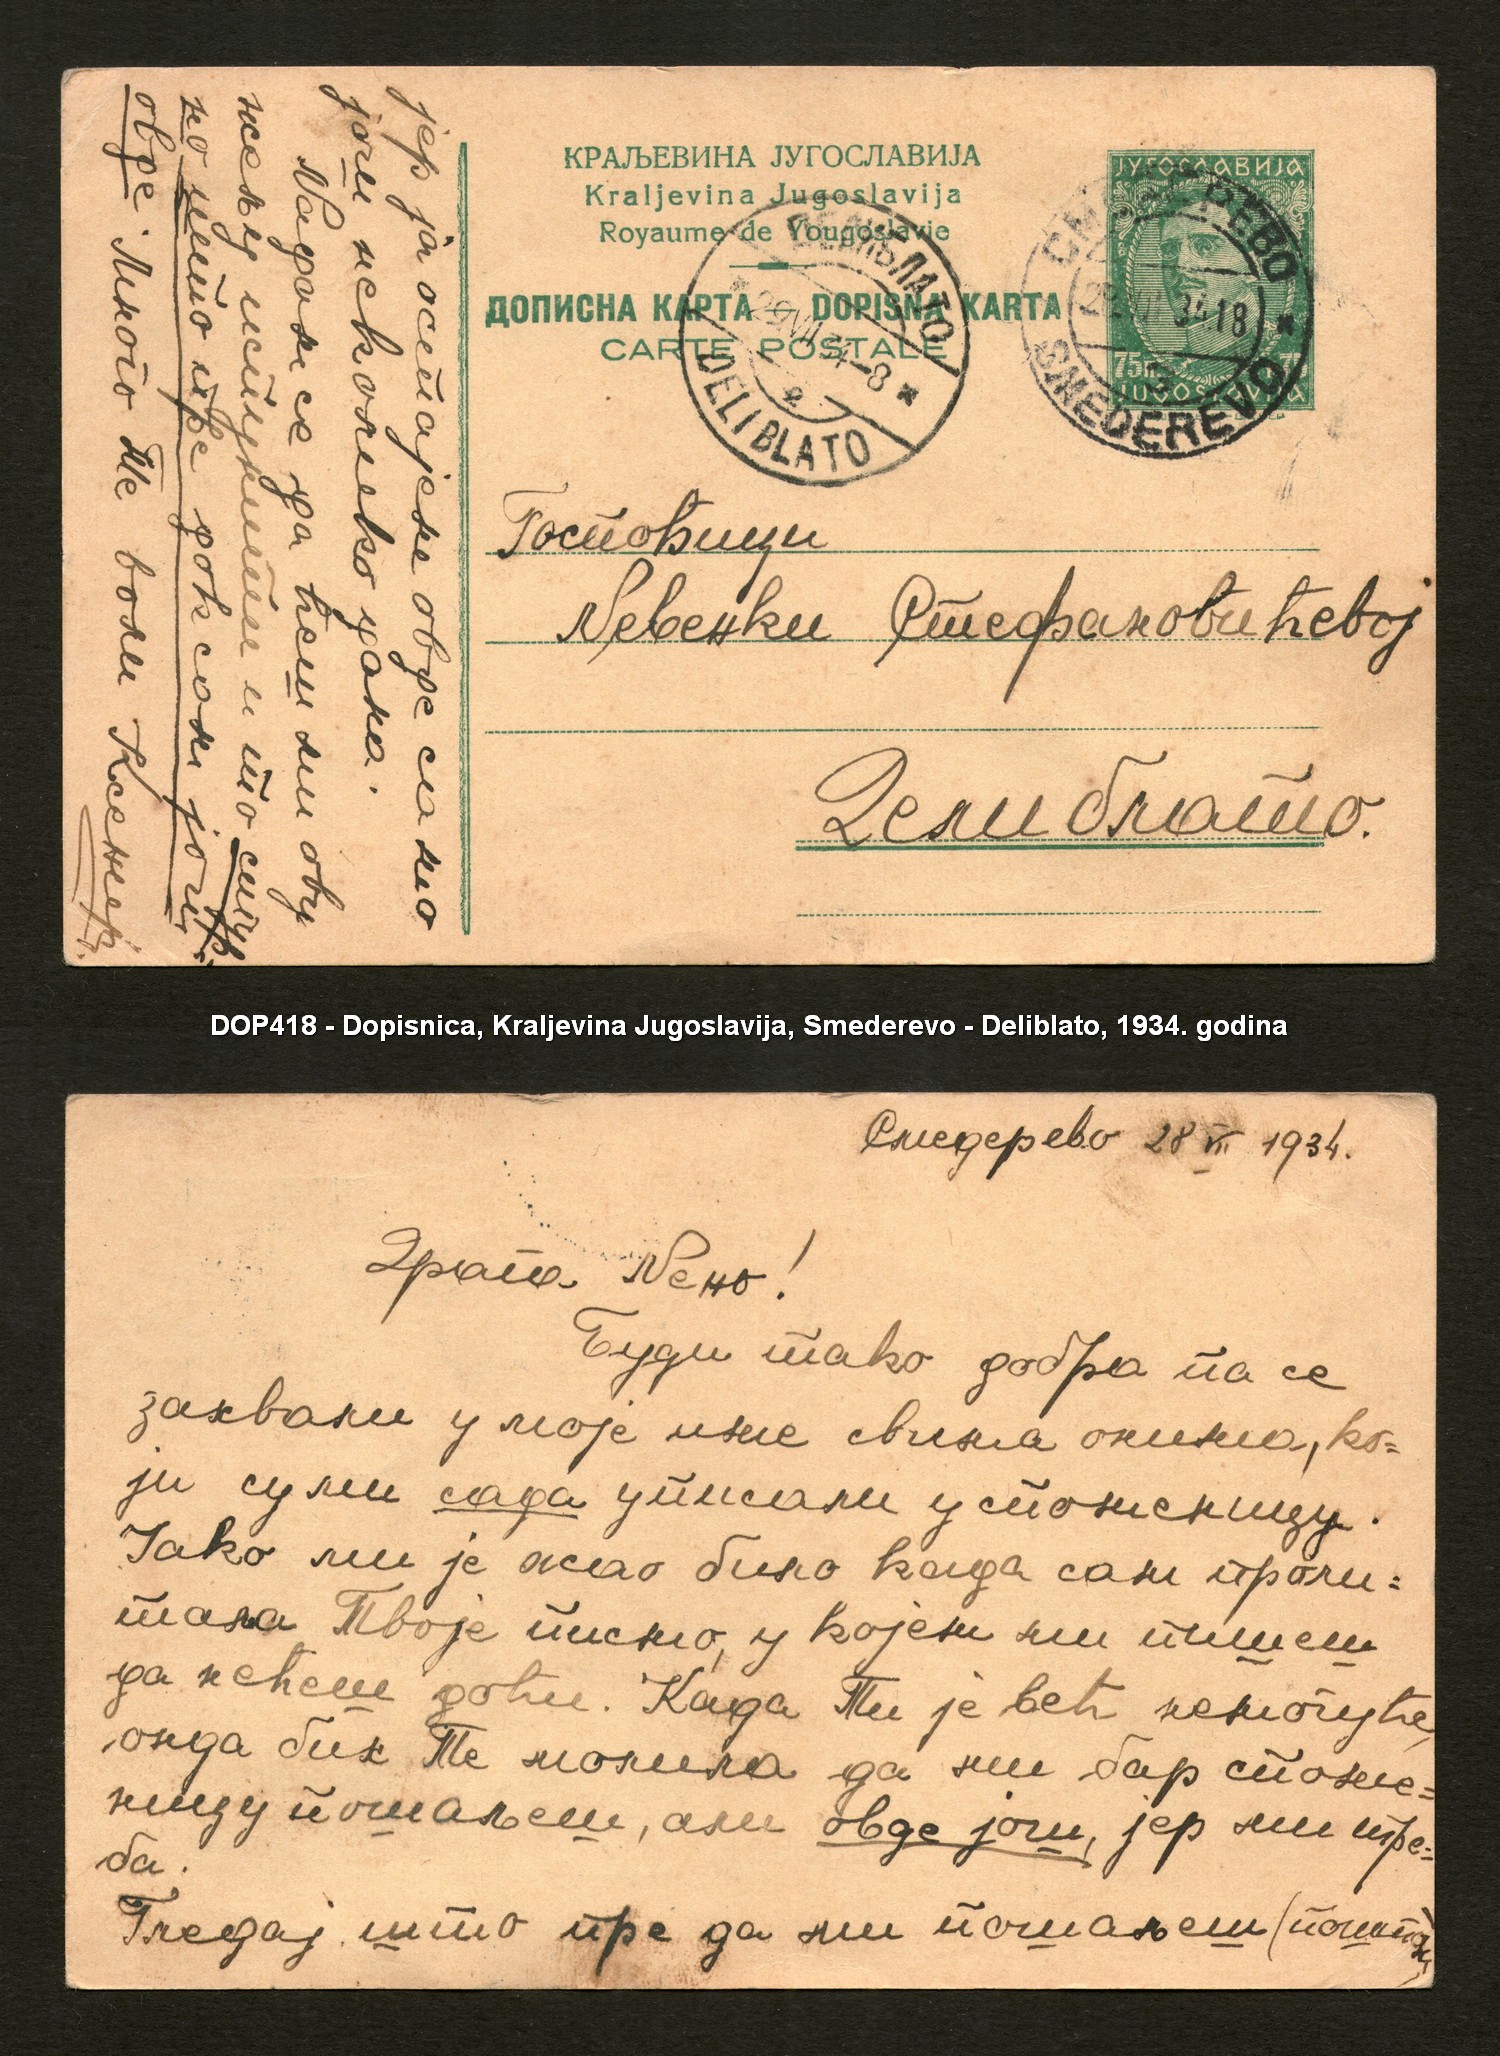 јер ја остајем овде само
још неколико дана.
Надам се да ћеш ми ову
жељу испунити и то ству
но што пре док сам још
овде. Много Те воли Ксенија.
КРАЉЕВИНА ЈУГОСЛАВИЈА
Kraljevina Jugoslavija
Royaume de Yougoslavie
ДОПИСНА КАРТА – DOPISNA KARTA
CARTE POSTALE
ДЕЛИБЛАТО
29 VII 34-8
DELIBLATO
ЈУГОСЛАВИЈА
75 75
JUGOSLAVIJA
СМЕДЕРЕВО
28 VII 34 18
SMEDEREVO
Госпођици
Невенки Стефановићевој
Делиблато.
DOP418 - Dopisnica, Kraljevina Jugoslavija, Smederevo - Deliblato, 1934. godina
Смедерево 28 VII 1934.
Драга Нено!
Буди тако добра па се
захвали у моје име свима онима, ко=
ји су ми сада уписали у споменицу.
Јако ми је жао било када сам прочи=
тала Твоје писмо, у којем ми пишеш
да нећеш доћи. Када Ти је већ немогуће,
онда бих Те молила да ми бар споме=
ницу пошаљеш, али овде још, јер ми тре=
ба.
Гледај што пре да ми пошаљеш (поштом)